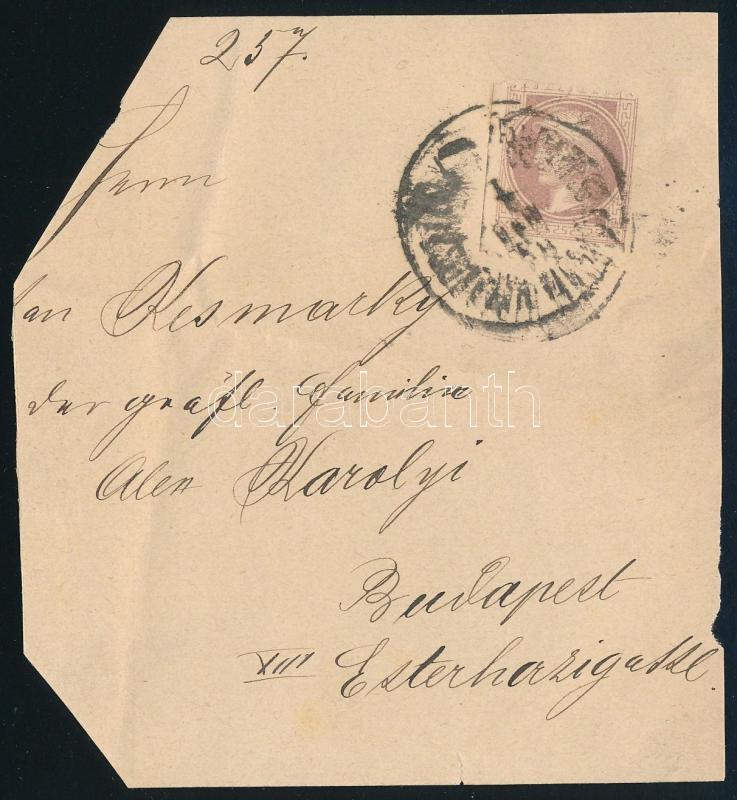 257.
Herrn
an Kesmarky
der gräfl. Familie
darabanth
Alex Karolyi
Budapest
VIII Esterhazigasse.